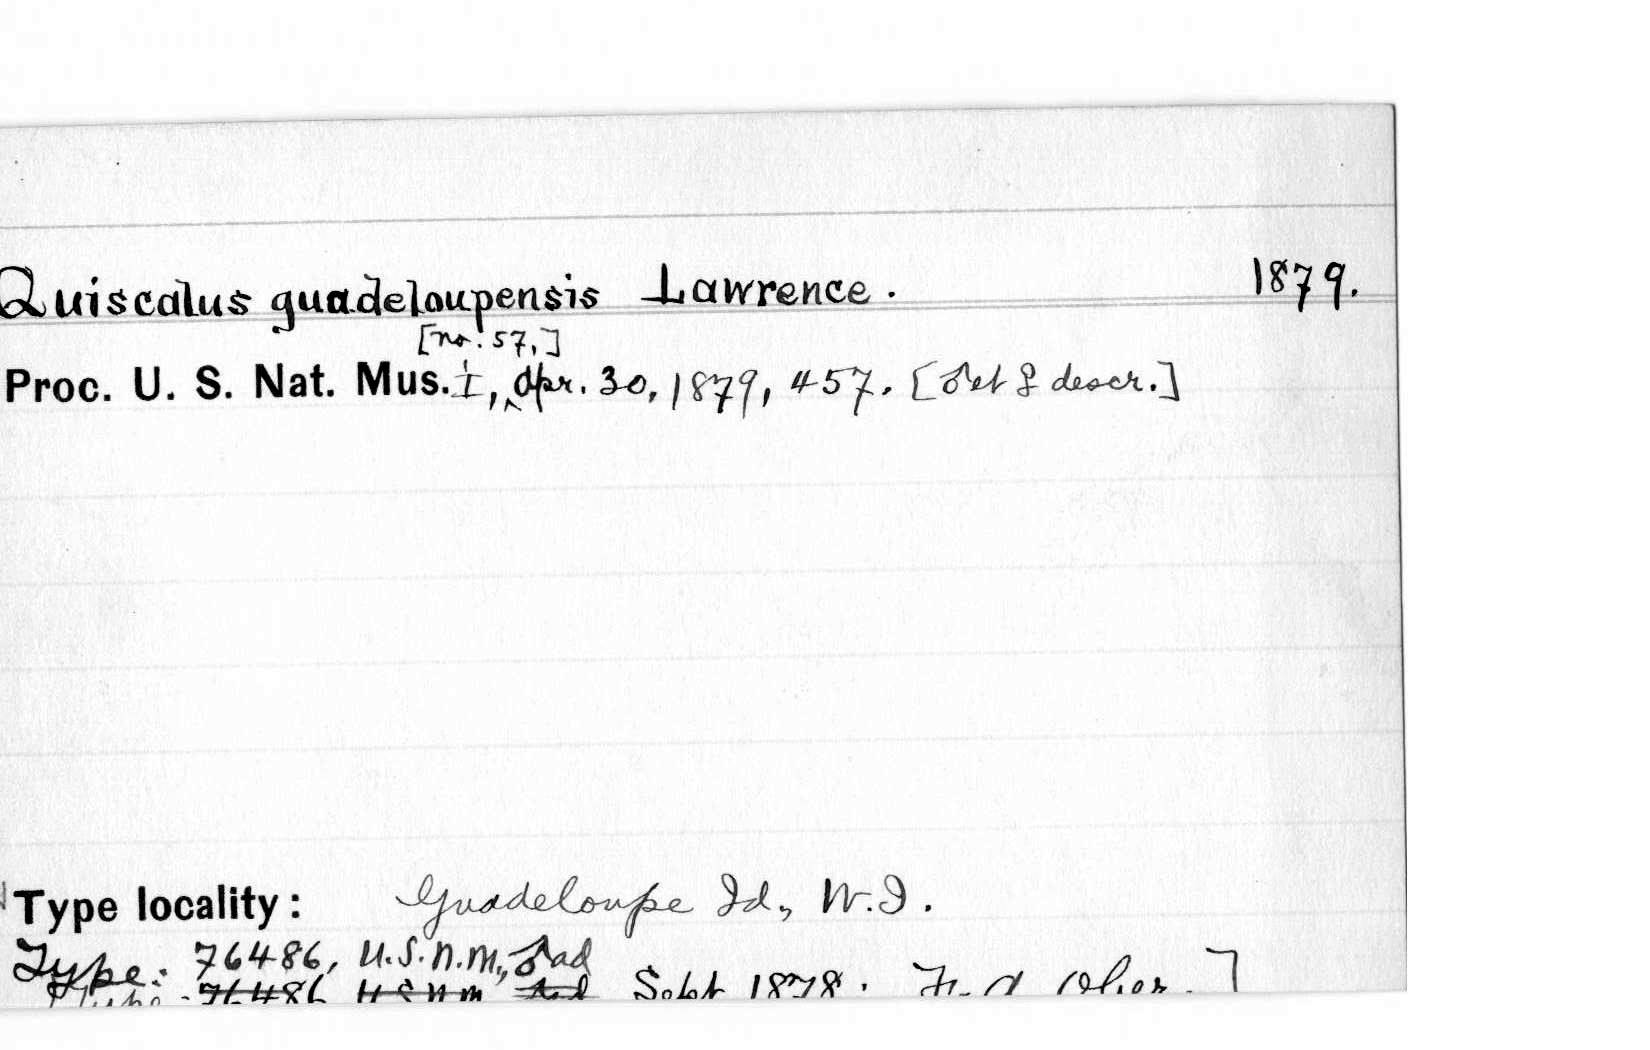 Quiscalus guadeloupensis Lawrence. 1879.
[no. 57,]
Proc. U. S. Nat. Mus. I, Apr. 30, 1879, 457. [♂ et ♀ descr.]
Type locality: Guadeloupe Id., W.I.
Type: 76486, U.S.N.M., ♂ ad
Type: 76486 U.S.N.M. Sept 1878. F. A. Ober.]